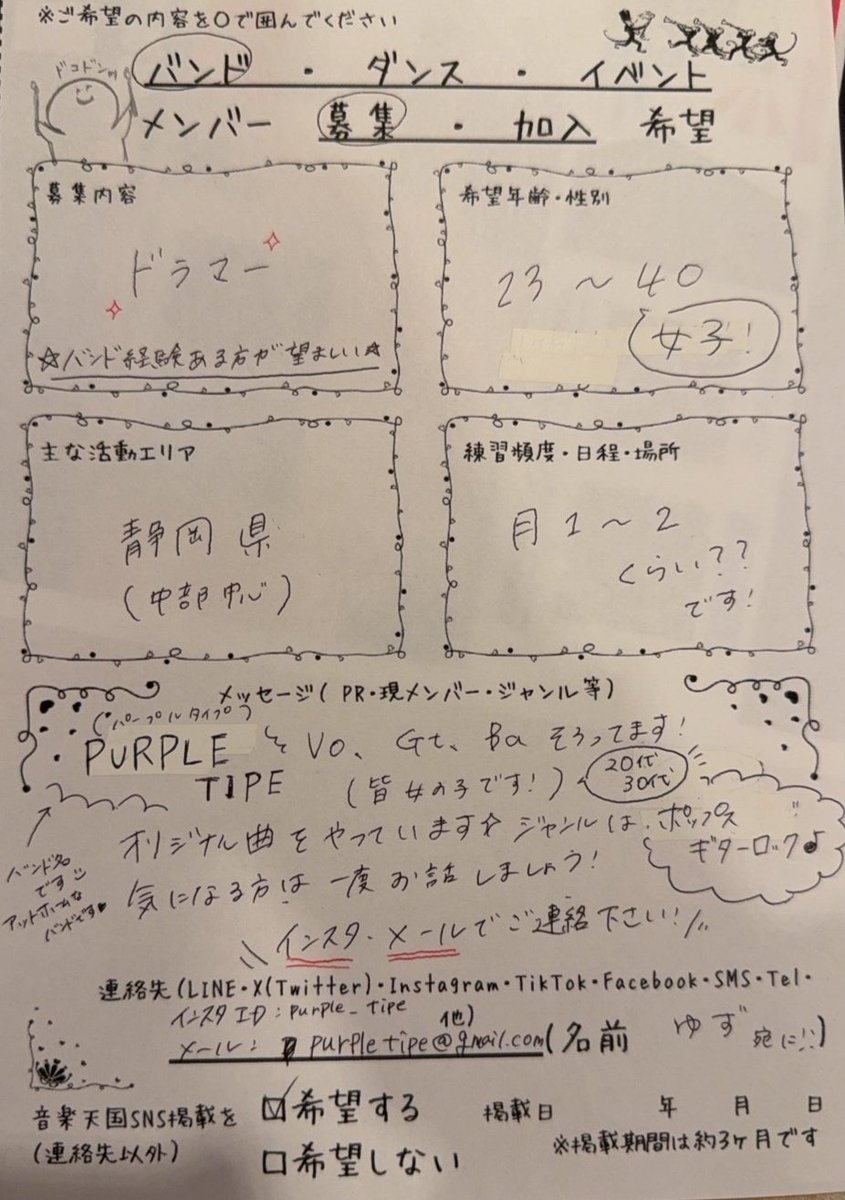 ※ご希望の内容を○で囲んでください
ドコドン
バンド ・ ダンス ・ イベント
メンバー 募集 ・ 加入 希望
募集内容
ドラマー
☆バンド経験ある方が望ましい☆
希望年齢・性別
23〜40
女子!
主な活動エリア
静岡県
(中部中心)
練習頻度・日程・場所
月1〜2
くらい??
です!
メッセージ( PR・現メンバー・ジャンル等)
(パープルタイプ)
PURPLE TIPE
Vo、Gt、Ba そろってます!
(皆女の子です!)
20代
30代
オリジナル曲をやっています☆ ジャンルは、ポップス
ギターロック♪
バンド名
です
アットホームな
バンドです
気になる方は一度お話しましょう!
\\インスタ・メールでご連絡下さい!//
連絡先(LINE・X(Twitter)・Instagram・TikTok・Facebook・SMS・Tel・
他)
インスタID:purple_tipe
メール: purpletipe@gmail.com(名前 ゆず 宛に!!)
音楽天国SNS掲載を
(連絡先以外)
☑希望する
□希望しない
掲載日 年 月 日
※掲載期間は約3ヶ月です